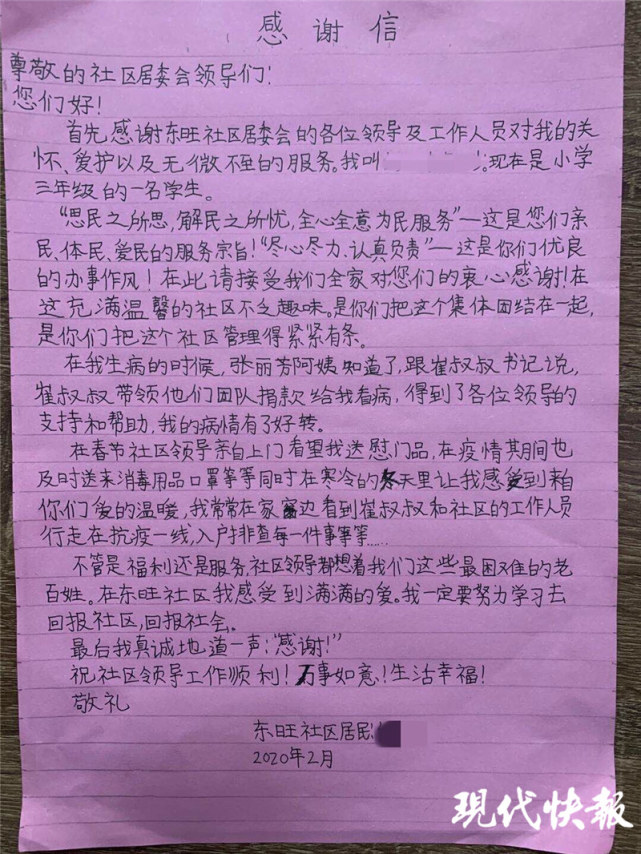 感谢信
尊敬的社区居委会领导们!
您们好!
首先感谢东旺社区居委会的各位领导及工作人员对我的关
怀、爱护以及无微不至的服务。我叫 。现在是小学
三年级的一名学生。
“思民之所思,解民之所忧,全心全意为民服务”—这是您们亲
民、体民、爱民的服务宗旨!“尽心尽力、认真负责”—这是你们优良
的办事作风!在此请接受我们全家对您们的衷心感谢!在
这充满温馨的社区不乏趣味。是你们把这个集体团结在一起,
是你们把这个社区管理得紧紧有条。
在我生病的时候,张丽芳阿姨知道了,跟崔叔叔书记说,
崔叔叔带领他们团队捐款给我看病,得到了各位领导的
支持和帮助,我的病情有了好转。
在春节社区领导亲自上门看望我送慰门品,在疫情其间也
及时送来消毒用品口罩等等同时在寒冷的冬天里让我感受到来自
你们爱的温暖,我常常在家窗边看到崔叔叔和社区的工作人员
行走在抗疫一线,入户排查每一件事等等……
不管是福利还是服务,社区领导都想着我们这些最困难的老
百姓。在东旺社区我感受到满满的爱。我一定要努力学习去
回报社区,回报社会。
最后我真诚地道一声:“感谢!”
祝社区领导工作顺利!万事如意!生活幸福!
敬礼
东旺社区居民
2020年2月
现代快報